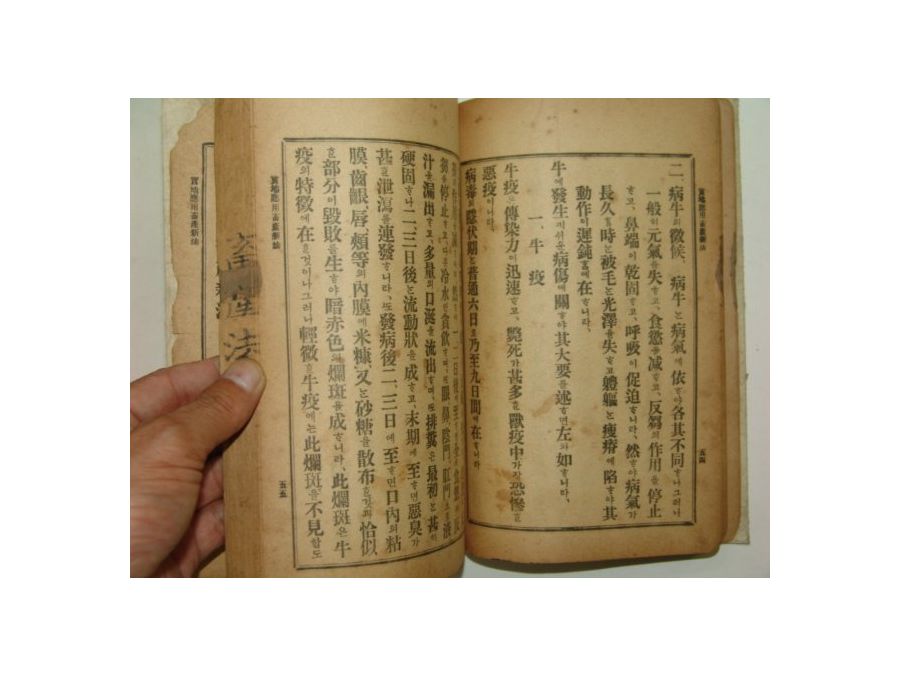 實地應用畜產新法
五四
二、病牛의徵候、病牛는病氣에依하야各其不同하나그러나
一般히元氣를失하고、食慾을減하고、反芻의作用을停止
하고、鼻端이乾固하고、呼吸이促迫하니라、然하야病氣가
長久할時는被毛는光澤을失하고、體軀는瘦瘠에陷하야其
動作이遲鈍홈에在하니라、
牛에發生하기쉬운病傷에關하야其大要를述하면左와如하니라、
一、牛疫
牛疫은傳染力이迅速하고、斃死가甚多한獸疫中가장恐慘한
惡疫이니라、
病毒의隱伏期는普通六日로乃至九日間에在하니라
을停止하고、冷水만貪飮하며、眼、鼻、陰門、肛門으로液
汁을漏出하고、多量의口涎을流出하며、또排糞은最初는甚히
硬固하나二、三日後는流動狀을成하고、末期에至하면惡臭가
甚한泄瀉를連發하니라、또發病後二、三日에至하면口內의粘
膜、齒齦、唇、頰等의內膜에米糠、又는砂糖을散布한것과恰似
한部分이毁敗를生하야暗赤色의爛斑을成하니라、此爛斑은牛
疫의特徵에在한것이나그러나輕微한牛疫에는此爛斑을不見함도
五五
實地應用畜產新法
產法